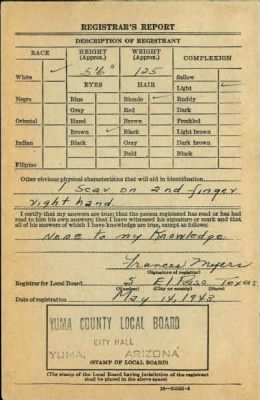 REGISTRAR'S REPORT
DESCRIPTION OF REGISTRANT
RACE
HEIGHT (Approx.)
WEIGHT (Approx.)
COMPLEXION
White ✓
5'6"
125
Sallow
EYES
HAIR
Light ✓
Negro
Blue
Blonde ✓
Ruddy
Gray
Red
Dark
Oriental
Hazel
Brown
Freckled
Brown ✓
Black
Light brown
Indian
Black
Gray
Dark brown
Bald
Black
Filipino
Other obvious physical characteristics that will aid in identification
1 Scar on 2nd finger
right hand.
I certify that my answers are true; that the person registered has read or has had
read to him his own answers; that I have witnessed his signature or mark and that
all of his answers of which I have knowledge are true, except as follows:
None to my Knowledge
Frances Myers
(Signature of registrar)
Registrar for Local Board 5 El Paso Texas
(Number) (City or county) (State)
Date of registration May 14, 1943
YUMA COUNTY LOCAL BOARD
CITY HALL
YUMA, ARIZONA
(STAMP OF LOCAL BOARD)
(The stamp of the Local Board having jurisdiction of the registrant
shall be placed in the above space)